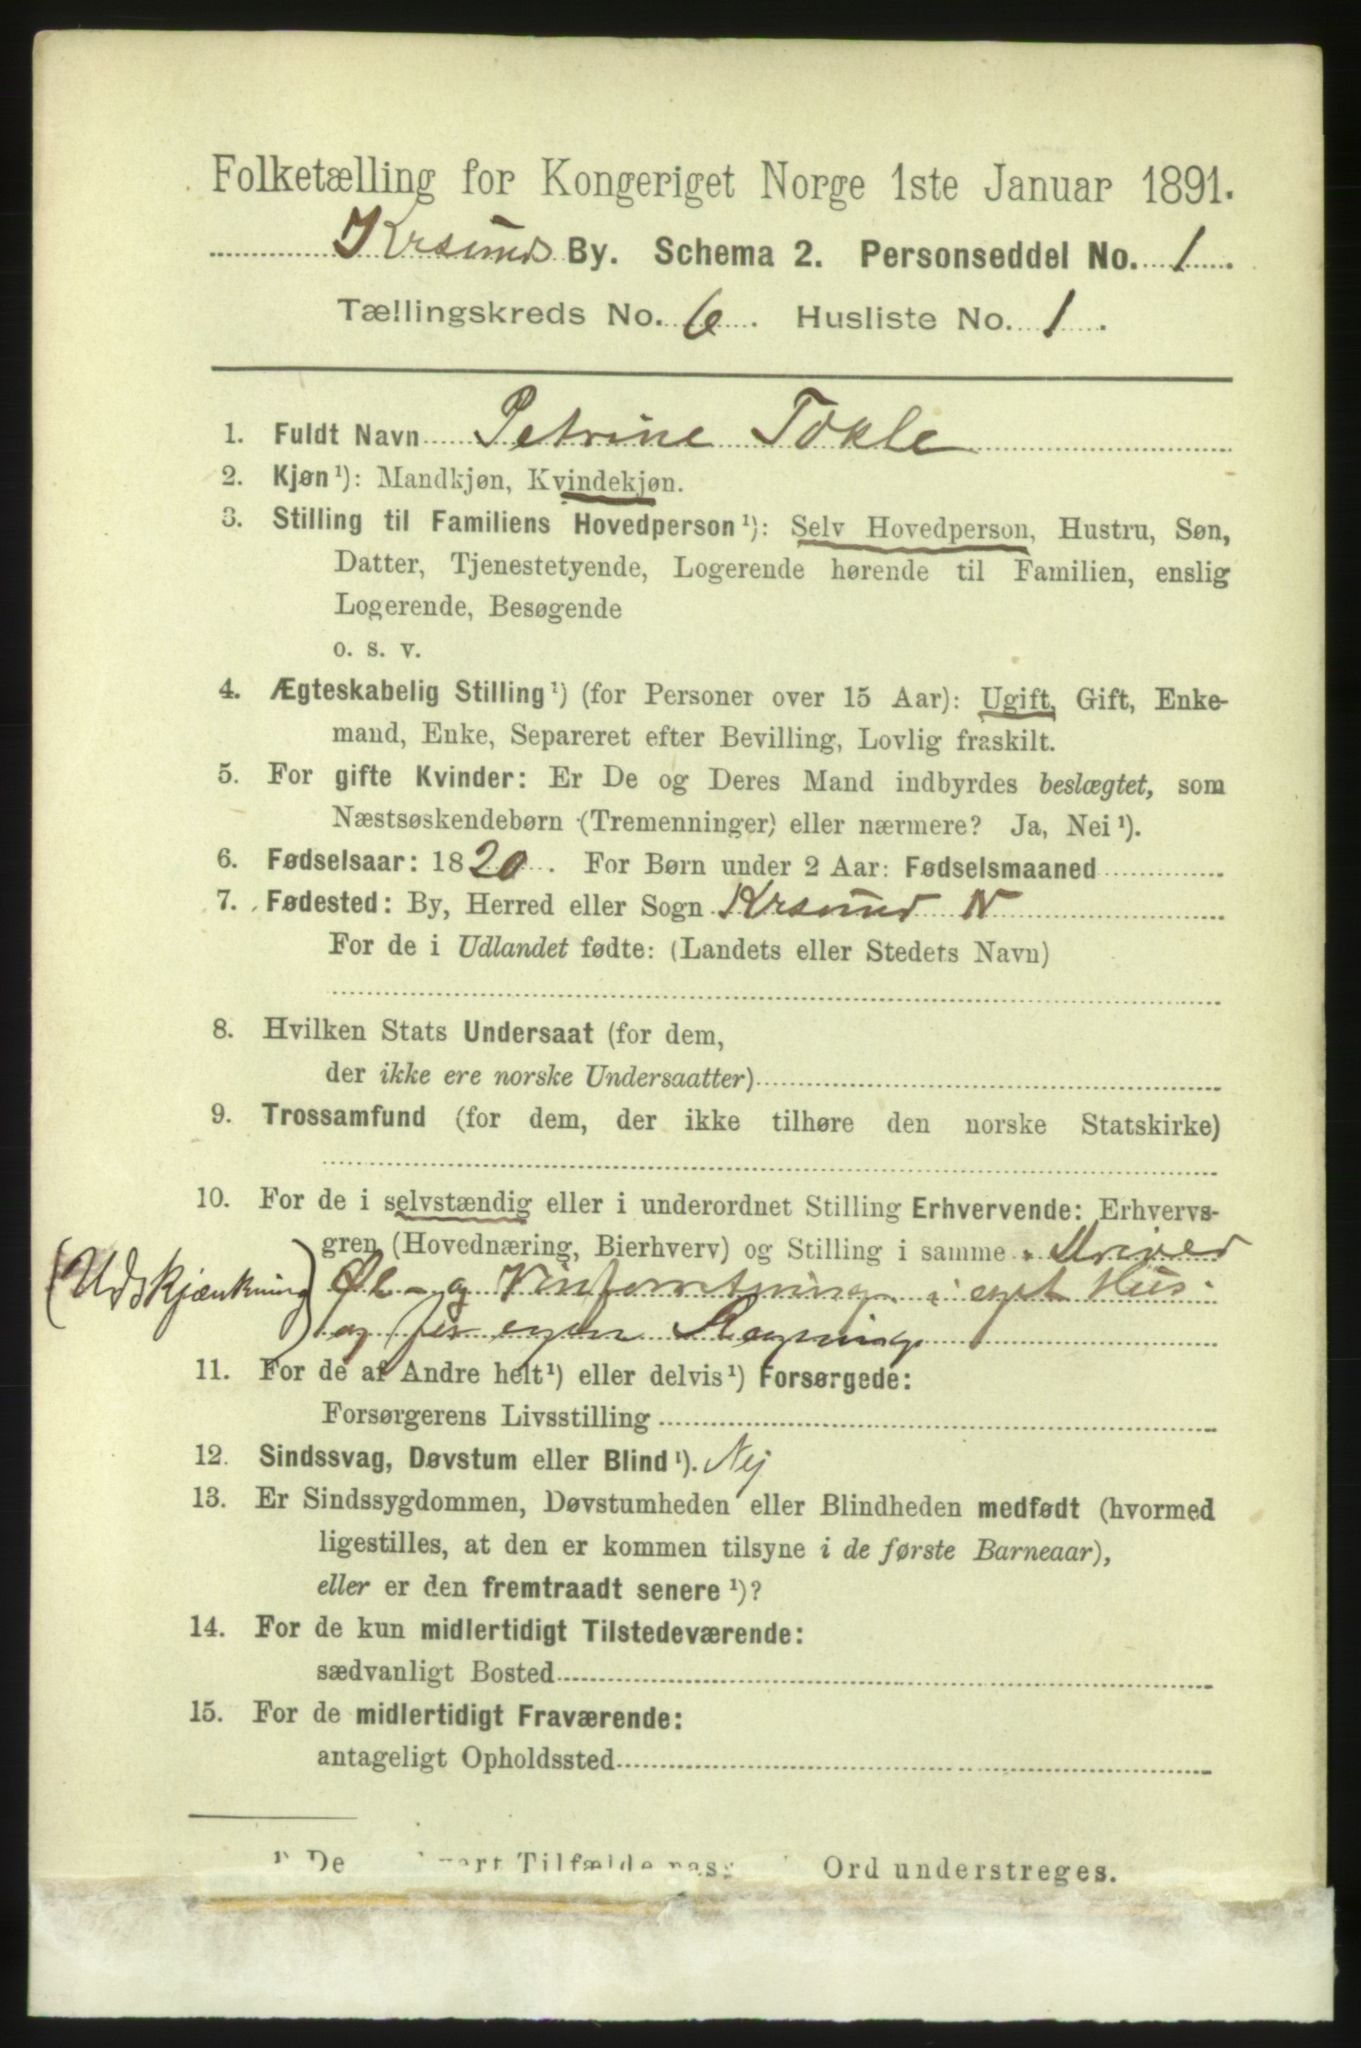 Folketælling for Kongeriget Norge 1ste Januar 1891.
Krsund By. Schema 2. Personseddel No. 1
Tællingskreds No. 6. Husliste No. 1.
1. Fuldt Navn Petrine Tokle
2. Kjøn¹): Mandkjøn, Kvindekjøn.
3. Stilling til Familiens Hovedperson¹): Selv Hovedperson, Hustru, Søn,
Datter, Tjenestetyende, Logerende hørende til Familien, enslig
Logerende, Besøgende
o. s. v.
4. Ægteskabelig Stilling¹) (for Personer over 15 Aar): Ugift, Gift, Enke-
mand, Enke, Separeret efter Bevilling, Lovlig fraskilt.
5. For gifte Kvinder: Er De og Deres Mand indbyrdes beslægtet, som
Næstsøskendebørn (Tremenninger) eller nærmere? Ja, Nei¹).
6. Fødselsaar: 1820. For Børn under 2 Aar: Fødselsmaaned
7. Fødested: By, Herred eller Sogn Krsund N
For de i Udlandet fødte: (Landets eller Stedets Navn)
8. Hvilken Stats Undersaat (for dem,
der ikke ere norske Undersaatter)
9. Trossamfund (for dem, der ikke tilhøre den norske Statskirke)
10. For de i selvstændig eller i underordnet Stilling Erhvervende: Erhvervs-
gren (Hovednæring, Bierhverv) og Stilling i samme Driver
(Udskjænkning) Øl- og Vinforretning i eget Hus
og for egen Regning
11. For de af Andre helt¹) eller delvis¹) Forsørgede:
Forsørgerens Livsstilling
12. Sindssvag, Døvstum eller Blind¹). Nej
13. Er Sindssygdommen, Døvstumheden eller Blindheden medfødt (hvormed
ligestilles, at den er kommen tilsyne i de første Barneaar),
eller er den fremtraadt senere¹)?
14. For de kun midlertidigt Tilstedeværende:
sædvanligt Bosted
15. For de midlertidigt Fraværende:
antageligt Opholdssted
¹) De Tilfælde Ord understreges.